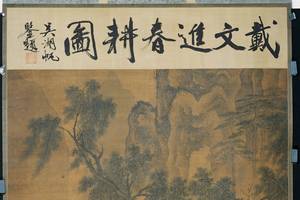 戴文進春耕圖
吳湖帆
鑒題